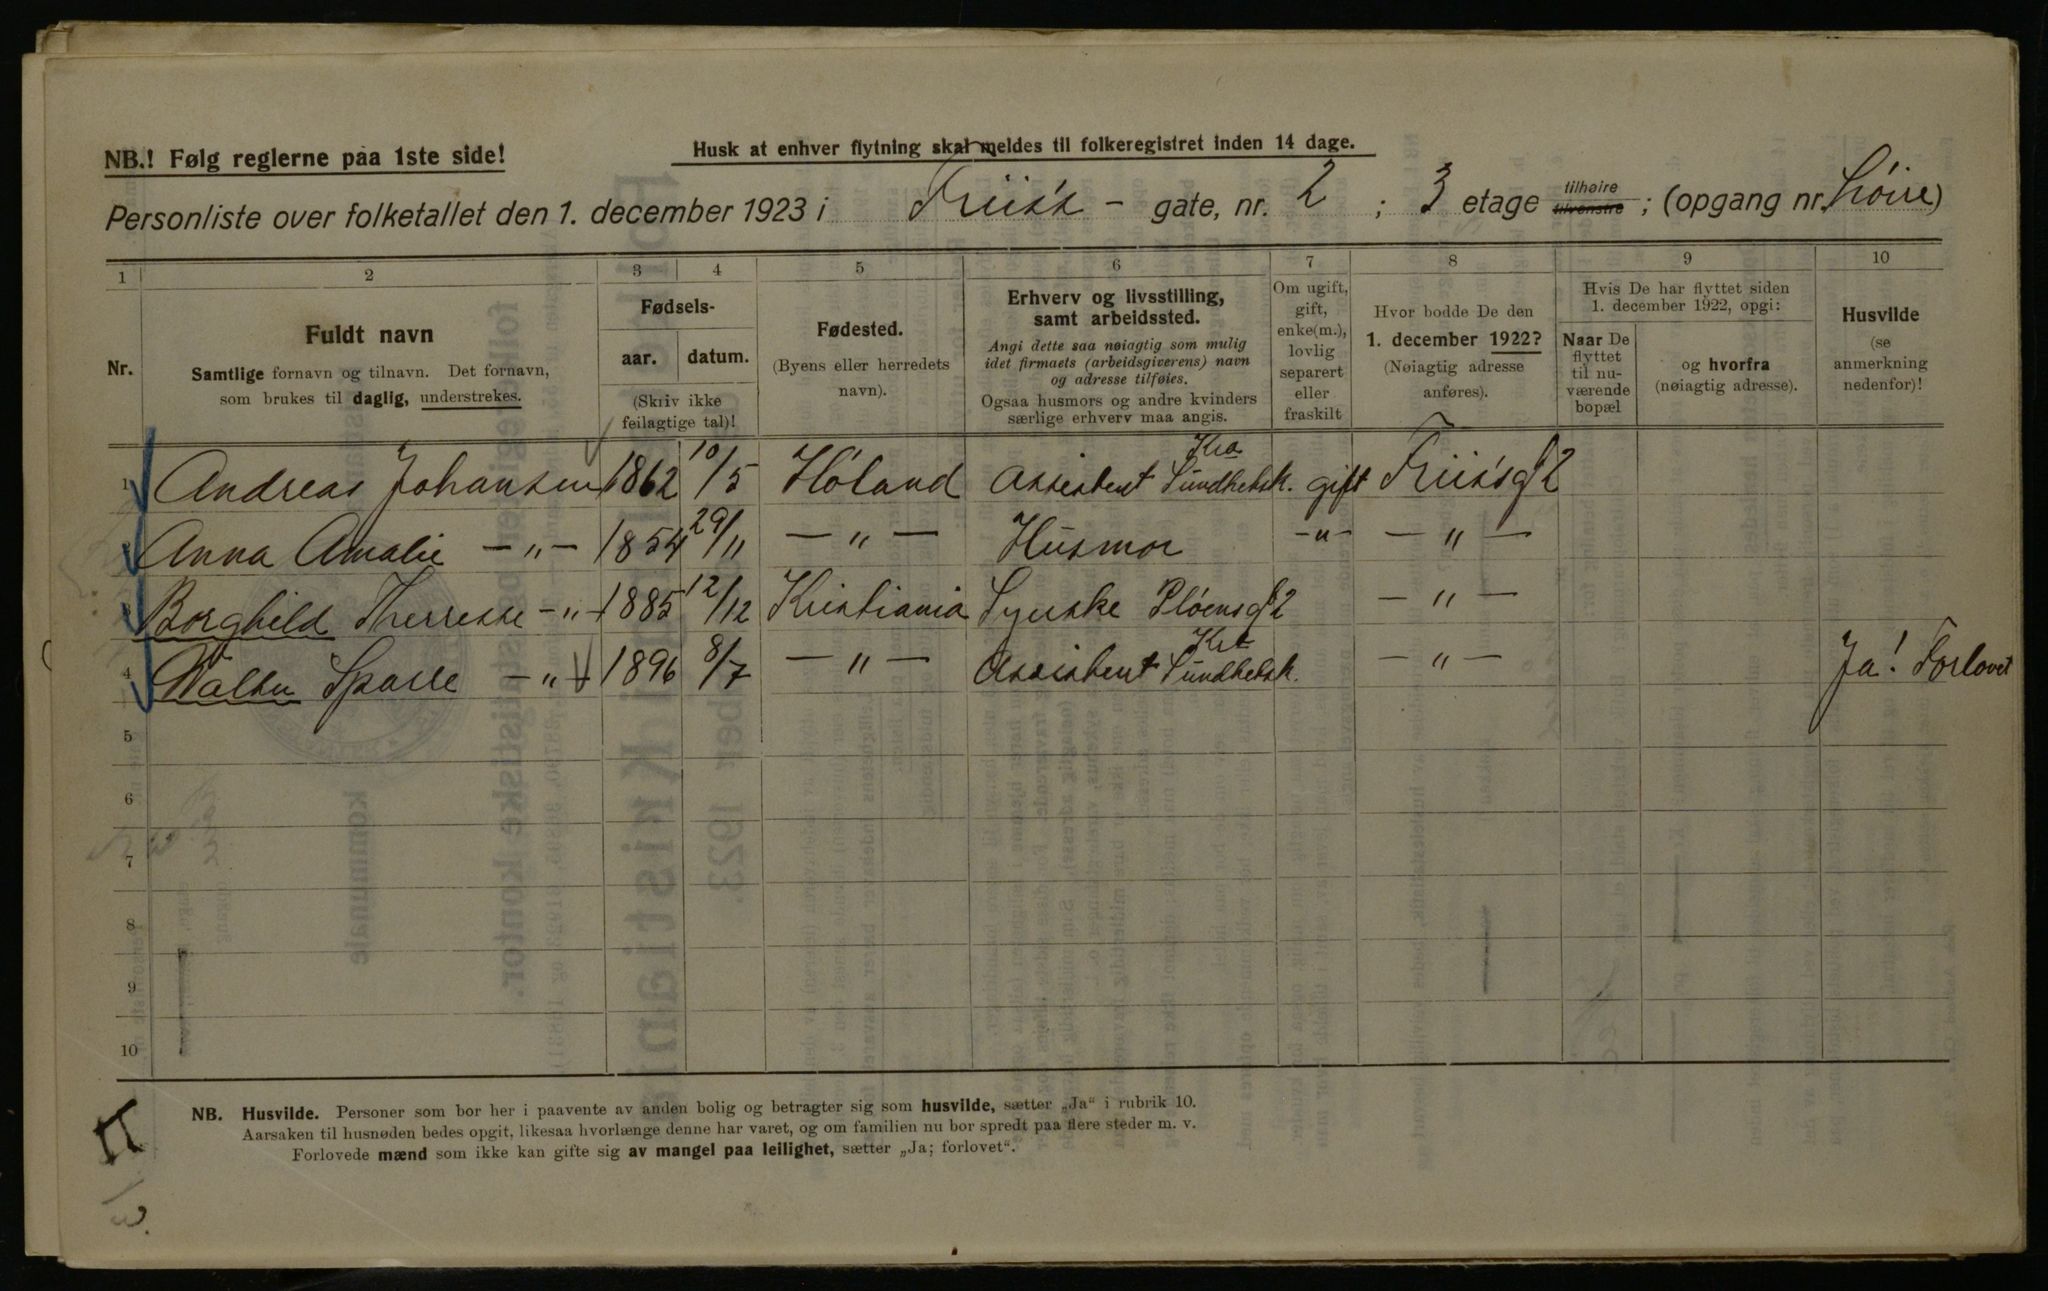 NB.! Følg reglerne paa 1ste side!
Husk at enhver flytning skal meldes til folkeregistret inden 14 dage.
Personliste over folketallet den 1. december 1923 i Friis's - gate, nr. 2 ; 3 etage tilhøire tilvenstre ; (opgang nr. høire)
1 2 3 4 5 6 7 8 9 10
Nr.
Fuldt navn
Samtlige fornavn og tilnavn. Det fornavn,
som brukes til daglig, understrekes.
Fødsels-
aar. datum.
(Skriv ikke
feilagtige tal)!
Fødested.
(Byens eller herredets
navn).
Erhverv og livsstilling,
samt arbeidssted.
Angi dette saa nøiagtig som mulig
idet firmaets (arbeidsgiverens) navn
og adresse tilføies.
Ogsaa husmors og andre kvinders
særlige erhverv maa angis.
Om ugift,
gift,
enke(m.),
lovlig
separert
eller
fraskilt
Hvor bodde De den
1. december 1922?
(Nøiagtig adresse
anføres).
Hvis De har flyttet siden
1. december 1922, opgi:
Naar De
flyttet
til nu-
værende
bopæl
og hvorfra
(nøiagtig adresse).
Husvilde
(se
anmerkning
nedenfor)!
1 Andreas Johansen 1862 10/5 Høland Assistent Kra Sundhetsk. gift Friis's g 2
2 Anna Amalie -"- 1854 29/11 -"- Husmor -"- -"-
3 Borghild Therresse -"- 1885 12/12 Kristiania Syerske Pløensg 2 -"-
4 Walter Sparre -"- 1896 8/7 -"- Assistent Kra Sundhetsk. -"- Ja! Forlovet
5
6
7
8
9
10
NB. Husvilde. Personer som bor her i paavente av anden bolig og betragter sig som husvilde, sætter „Ja“ i rubrik 10.
Aarsaken til husnøden bedes opgit, likesaa hvorlænge denne har varet, og om familien nu bor spredt paa flere steder m. v.
Forlovede mænd som ikke kan gifte sig av mangel paa leilighet, sætter „Ja; forlovet“.